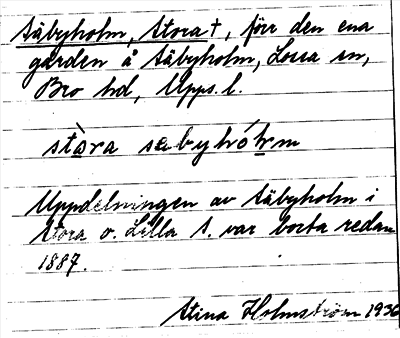 Säbyholm, Stora †, förr den ena
gården å Säbyholm, Låssa sn,
Bro hd, Upps. l.
stòra sabyhó̄rm
Uppdelningen av Säbyholm i
Stora o. Lilla S. var borta redan
1887.
Stina Holmström 1936